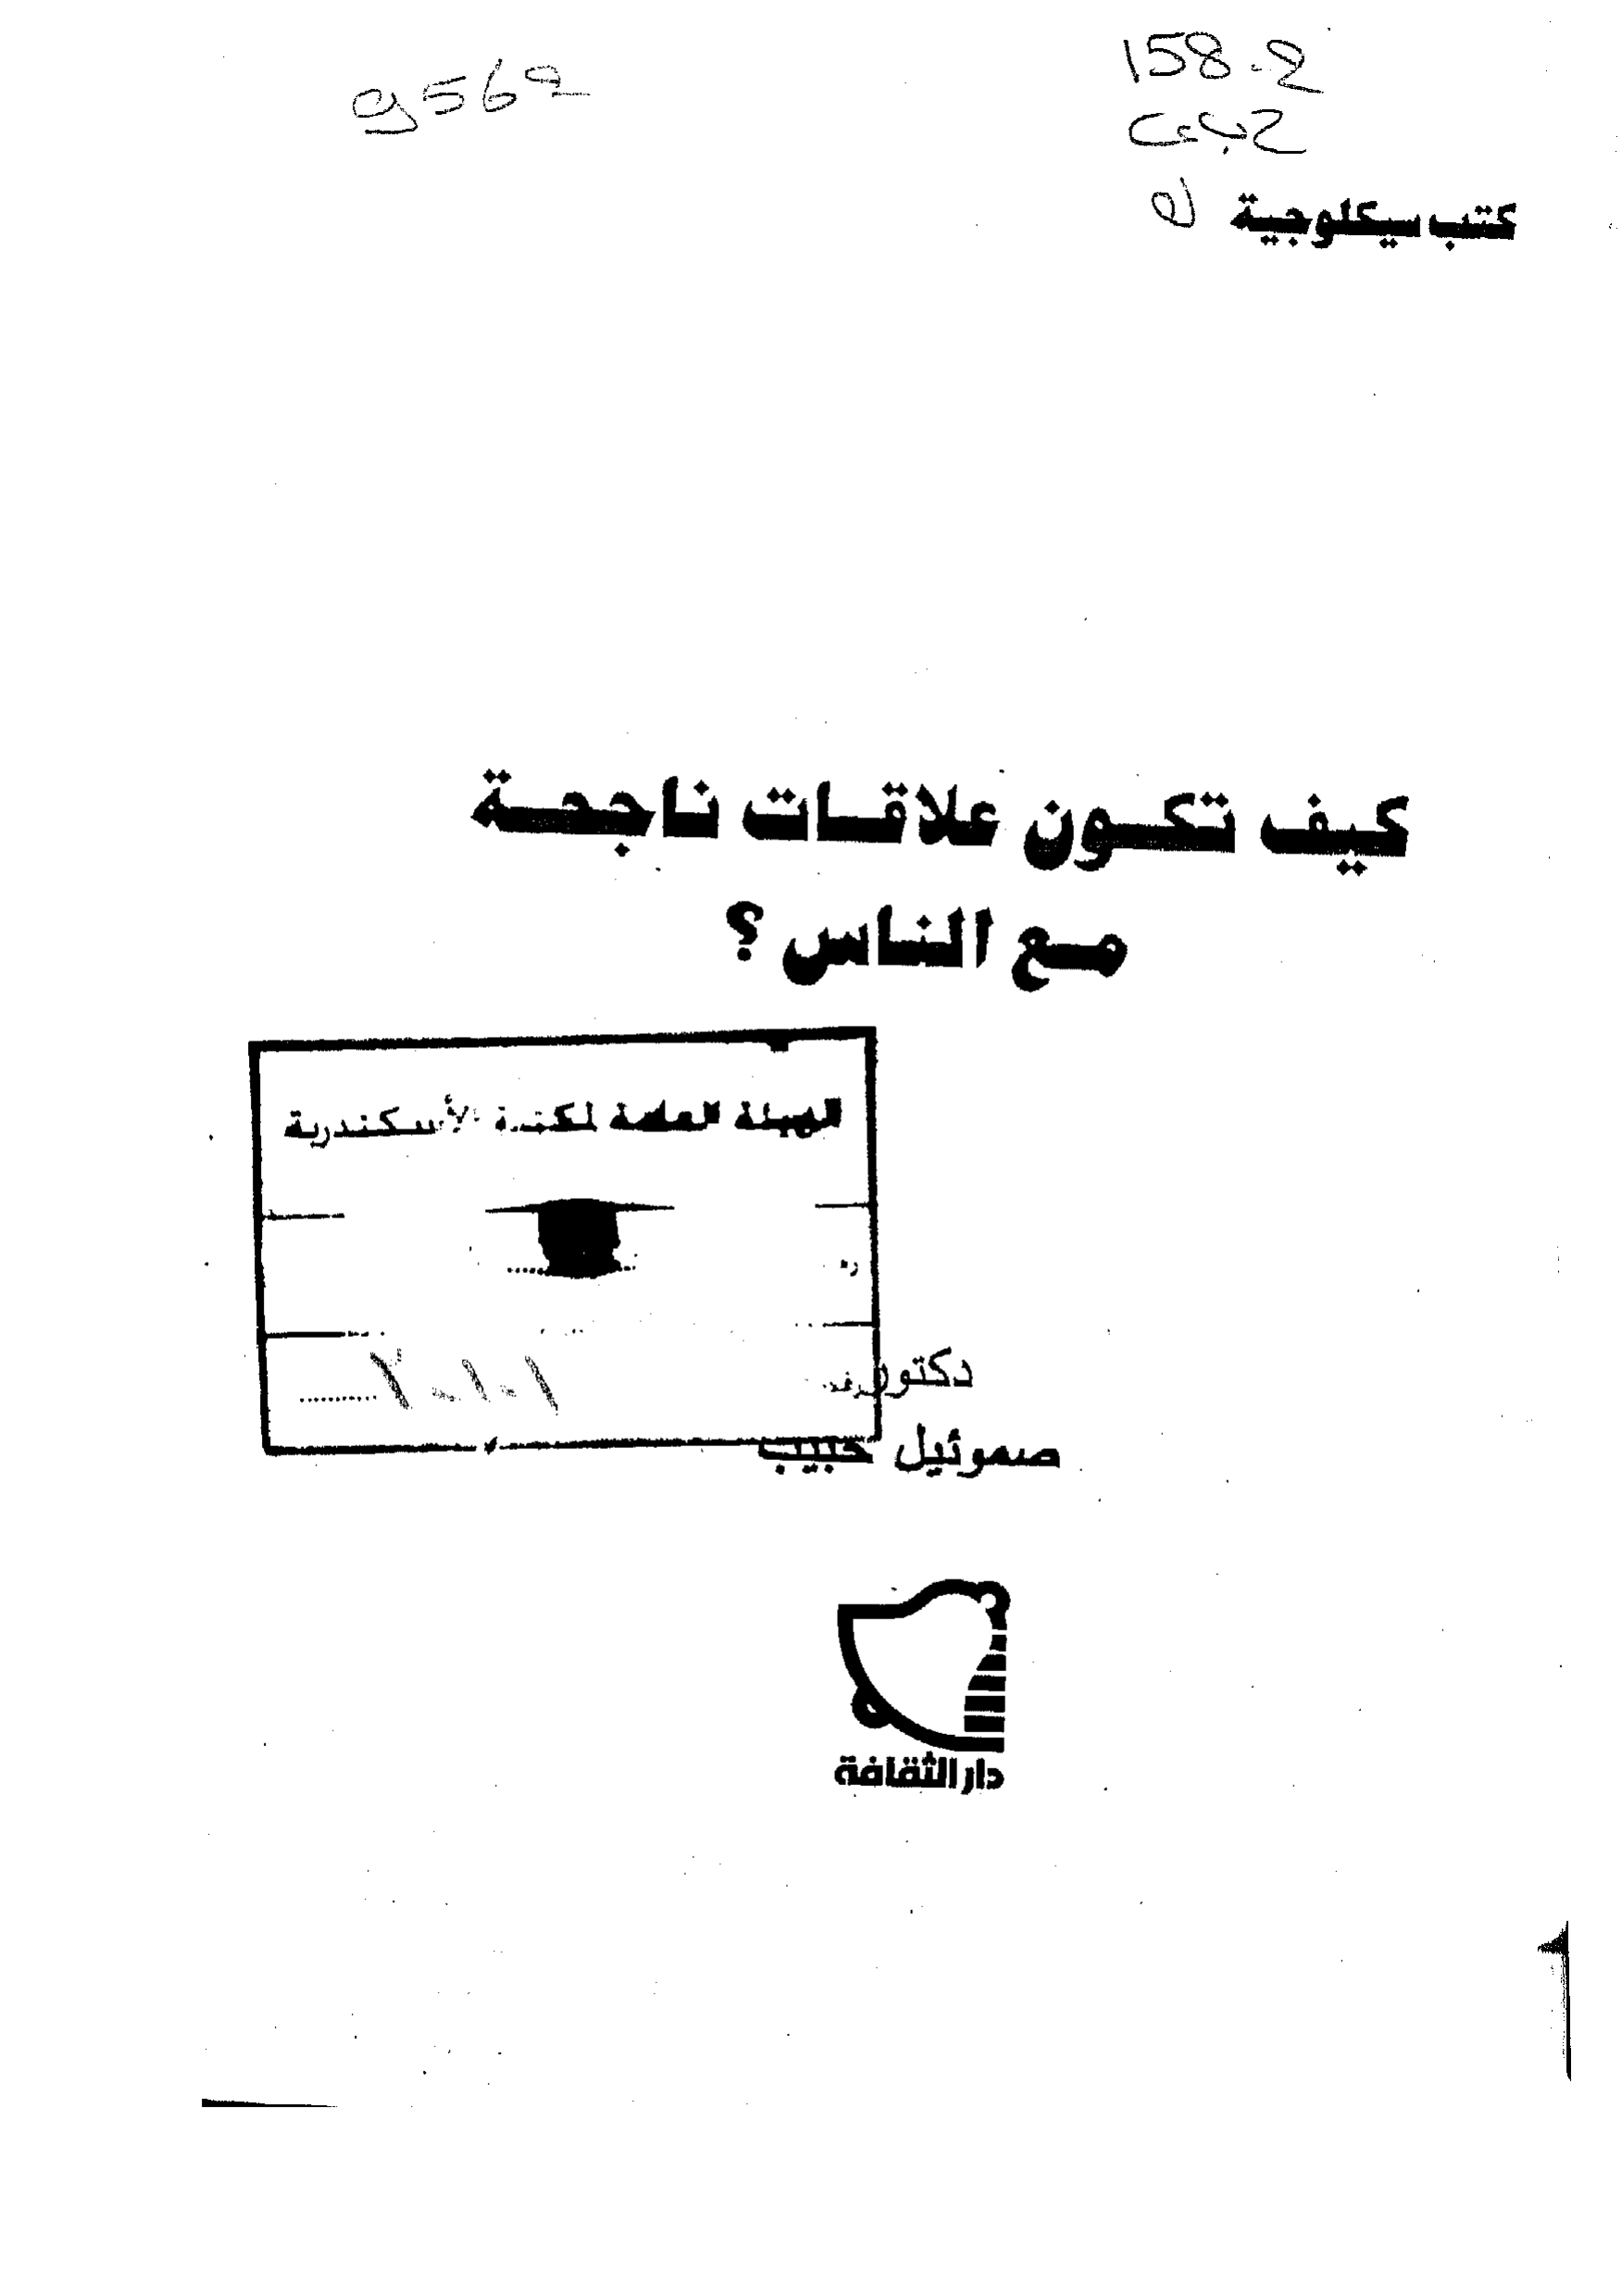 158.2
9562
كتب سيكلوجية
كيف تكون علاقات ناجحة
مع الناس ؟
الهيئة العامة لمكتبة الأسكندرية
دكتور
صموئيل حبيب
دار الثقافة